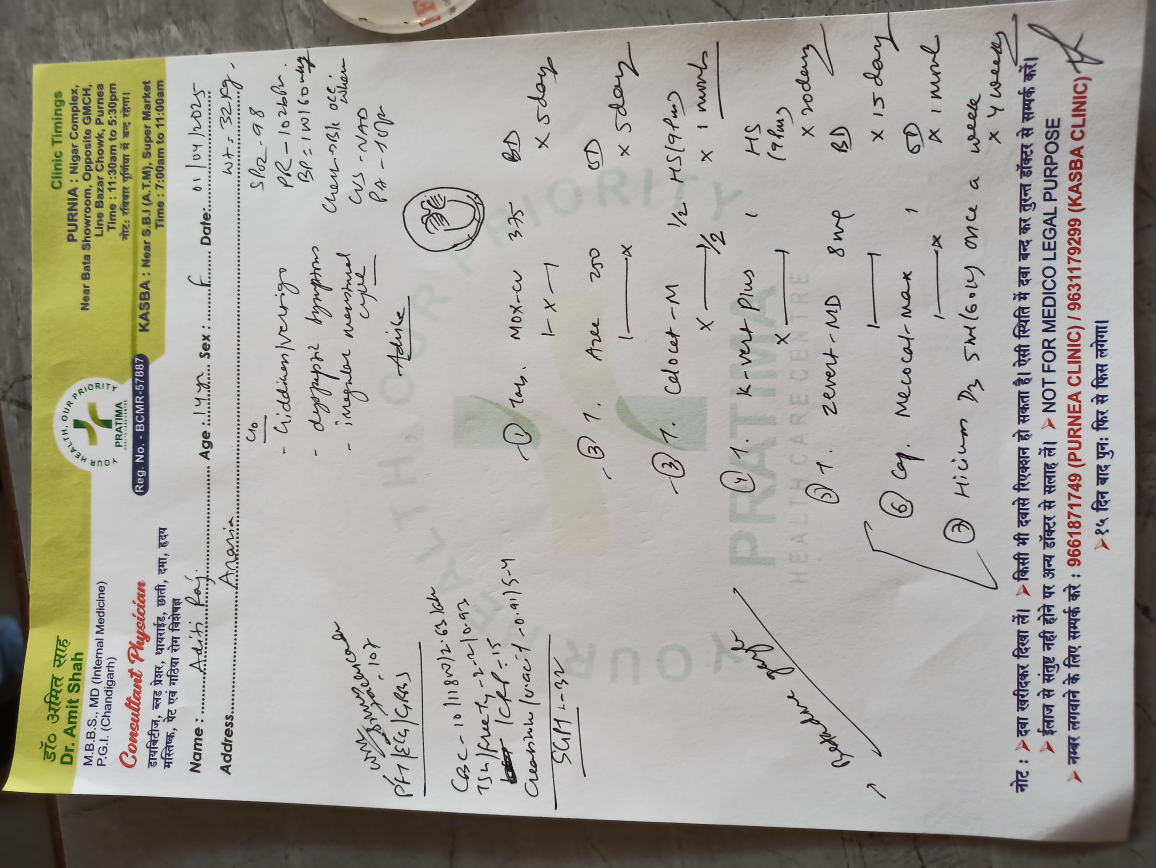 डॉ० अमित साह
Dr. Amit Shah
M.B.B.S., MD (Internal Medicine)
P.G.I. (Chandigarh)
Consultant Physician
डायबिटीज, ब्लड प्रेशर, थायराईड, छाती, दमा, हृदय
मस्तिष्क, पेट एवं गठिया रोग विशेषज्ञ
YOUR HEALTH, OUR PRIORITY
PRATIMA
Reg. No. - BCMR-57887
Clinic Timings
PURNIA : Nigar Complex,
Near Bata Showroom, Opposite GMCH,
Line Bazar Chowk, Purnea
Time : 11:30am to 5:30pm
नोट: रविवार पूर्णिया में बन्द रहेगा।
KASBA : Near S.B.I (A.T.M), Super Market
Time : 7:00am to 11:00am
Name : Aditi Raj. Age : 14 yr Sex : F Date: 01/04/2025
Address Araria Wt = 32 kg.
C/o
- Giddiness/vertigo
- dyspeptic symptoms
- irregular menstrual cycle
SPO2 - 98
PR - 102 bpm.
BP = 100/60
Chest - B/L
CVS - NAD
PA -
Advice
PFT/ECG/GRBS
107
CBC - 10/11800/2.63 lakh
CRP - 15
Creatinine/uric acid - 0.91/5.4
SGPT - 32
① Tab. MOX-CV 375 BD
1 - x - 1 x 5 days
② T. Azee 250 OD
1 — x x 5 days
③ T. Calocet-M 1/2 HS (9 PM)
x — 1/2 x 1 month
④ T. K-vert Plus 1 HS (9 PM)
x — 1 x 20 days
⑤ T. Zevert-MD 8 mg BD
1 — 1 x 15 days
⑥ Cap. Mecocat-max 1 OD
1 — x x 1 month
⑦ D3 5ml/60K once a week
x 4 weeks
YOUR HEALTH, OUR PRIORITY
PRATIMA
HEALTHCARE CENTRE
नोट : ➤ दवा खरीदकर दिखा लें। ➤ किसी भी दवासे रिएक्शन हो सकता है। ऐसी स्थिति में दवा बन्द कर तुरन्त डॉक्टर से सम्पर्क करें।
➤ ईलाज से संतुष्ट नही होने पर अन्य डॉक्टर से सलाह लें। ➤ NOT FOR MEDICO LEGAL PURPOSE
➤ नम्बर लगवाने के लिए सम्पर्क करे : 9661871749 (PURNEA CLINIC) / 9631179299 (KASBA CLINIC)
➤ १५ दिन बाद पुनः फिर से फिस लगेगा।